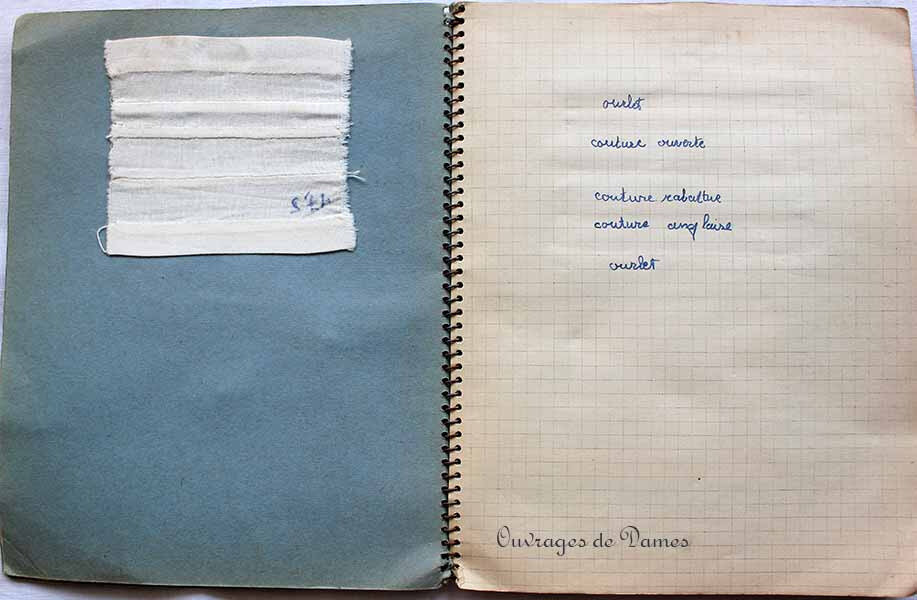 ourlet
couture ouverte
couture rabattue
couture anglaise
ourlet
Ouvrages de Dames